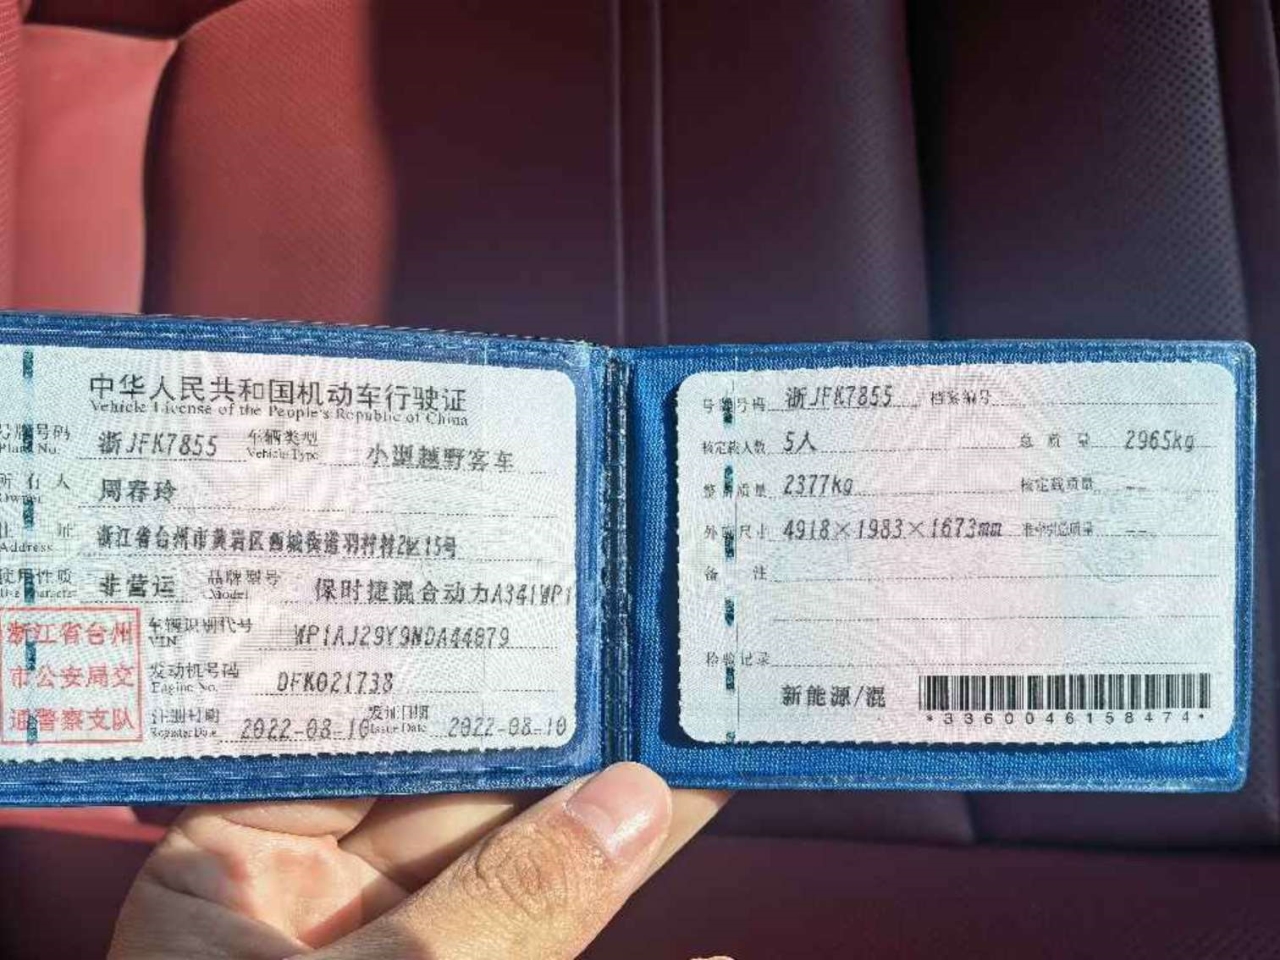 中华人民共和国机动车行驶证
Vehicle License of the People's Republic of China
号牌号码 浙JFK7855 车辆类型 小型越野客车
Plate No. Vehicle Type
所有人 周春玲
Owner
住址 浙江省台州市黄岩区西城街道羽村村2区15号
Address
使用性质 非营运 品牌型号 保时捷混合动力A341WP1
Use Character Model
浙江省台州
市公安局交
通警察支队
车辆识别代号 WP1AJ29Y9NDA44879
VIN
发动机号码 DFK021738
Engine No.
注册日期 2022-08-10 发证日期 2022-08-10
Register Date Issue Date
号牌号码 浙JFK7855 档案编号
核定载人数 5人 总质量 2965kg
整备质量 2377kg 核定载质量 --
外廓尺寸 4918×1983×1673mm 准牵引总质量 --
备注
检验记录
新能源/混
*3360046158474*